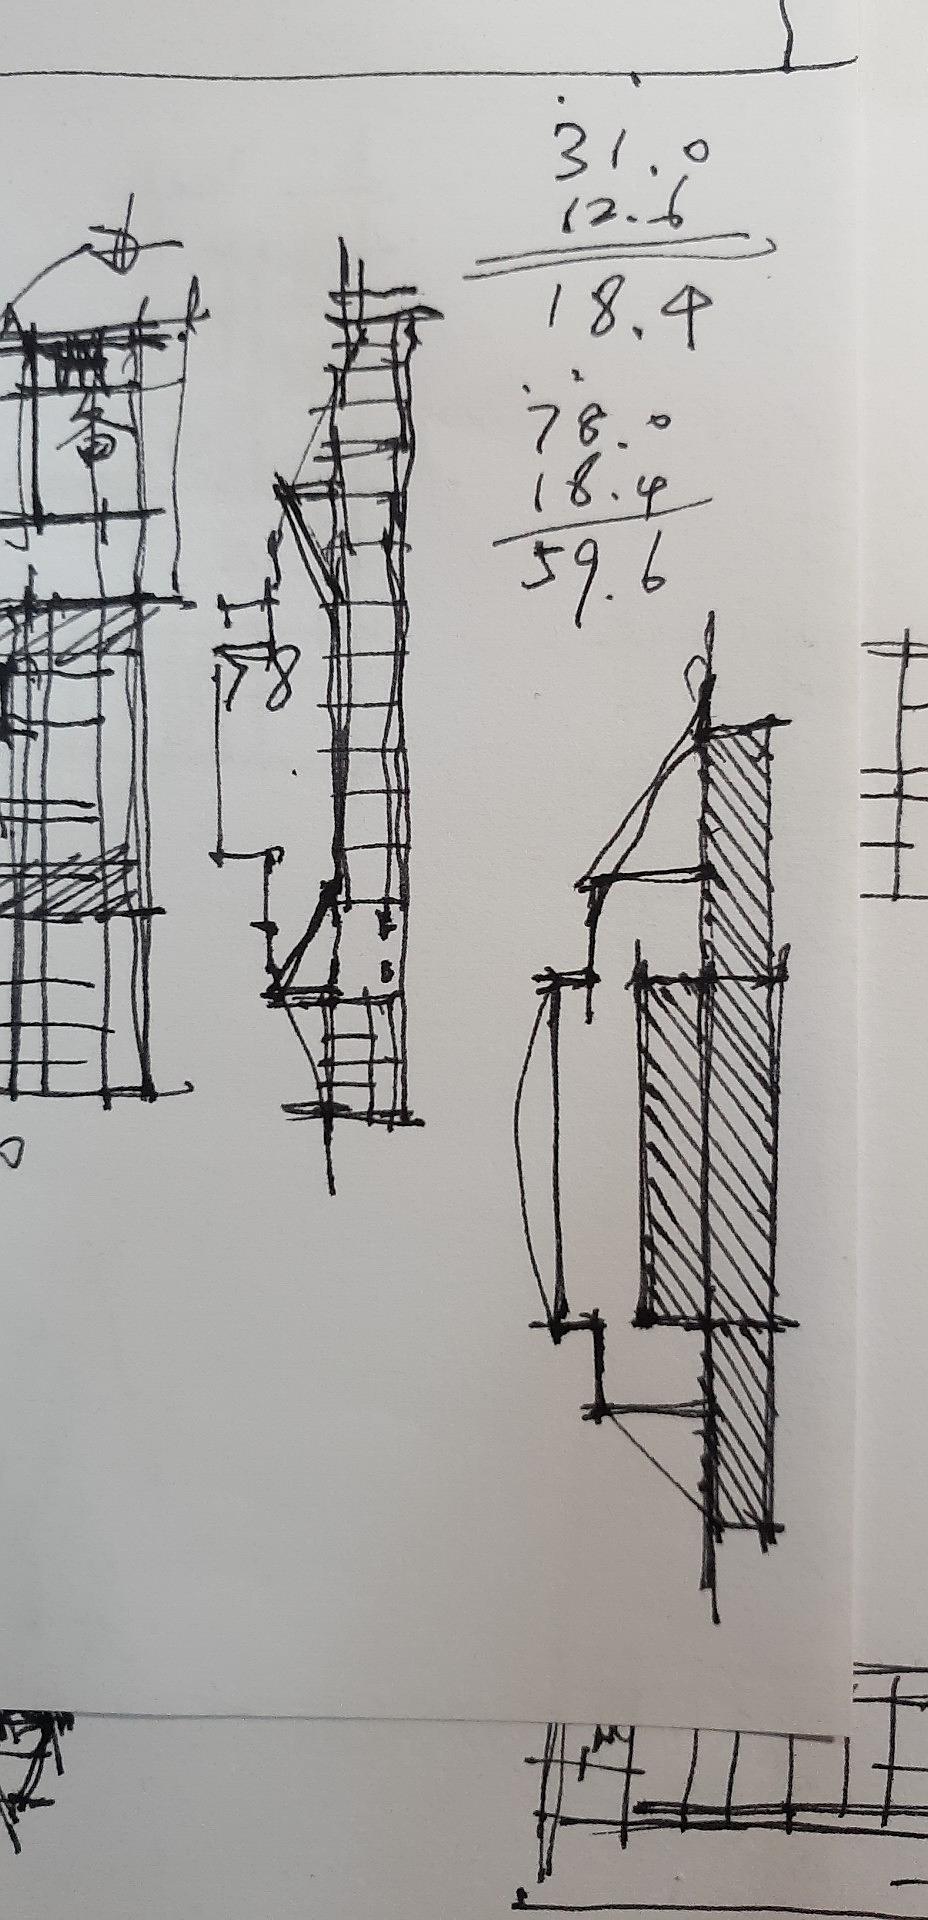 31.0
12.6
18.4
78.0
18.4
59.6
备
78